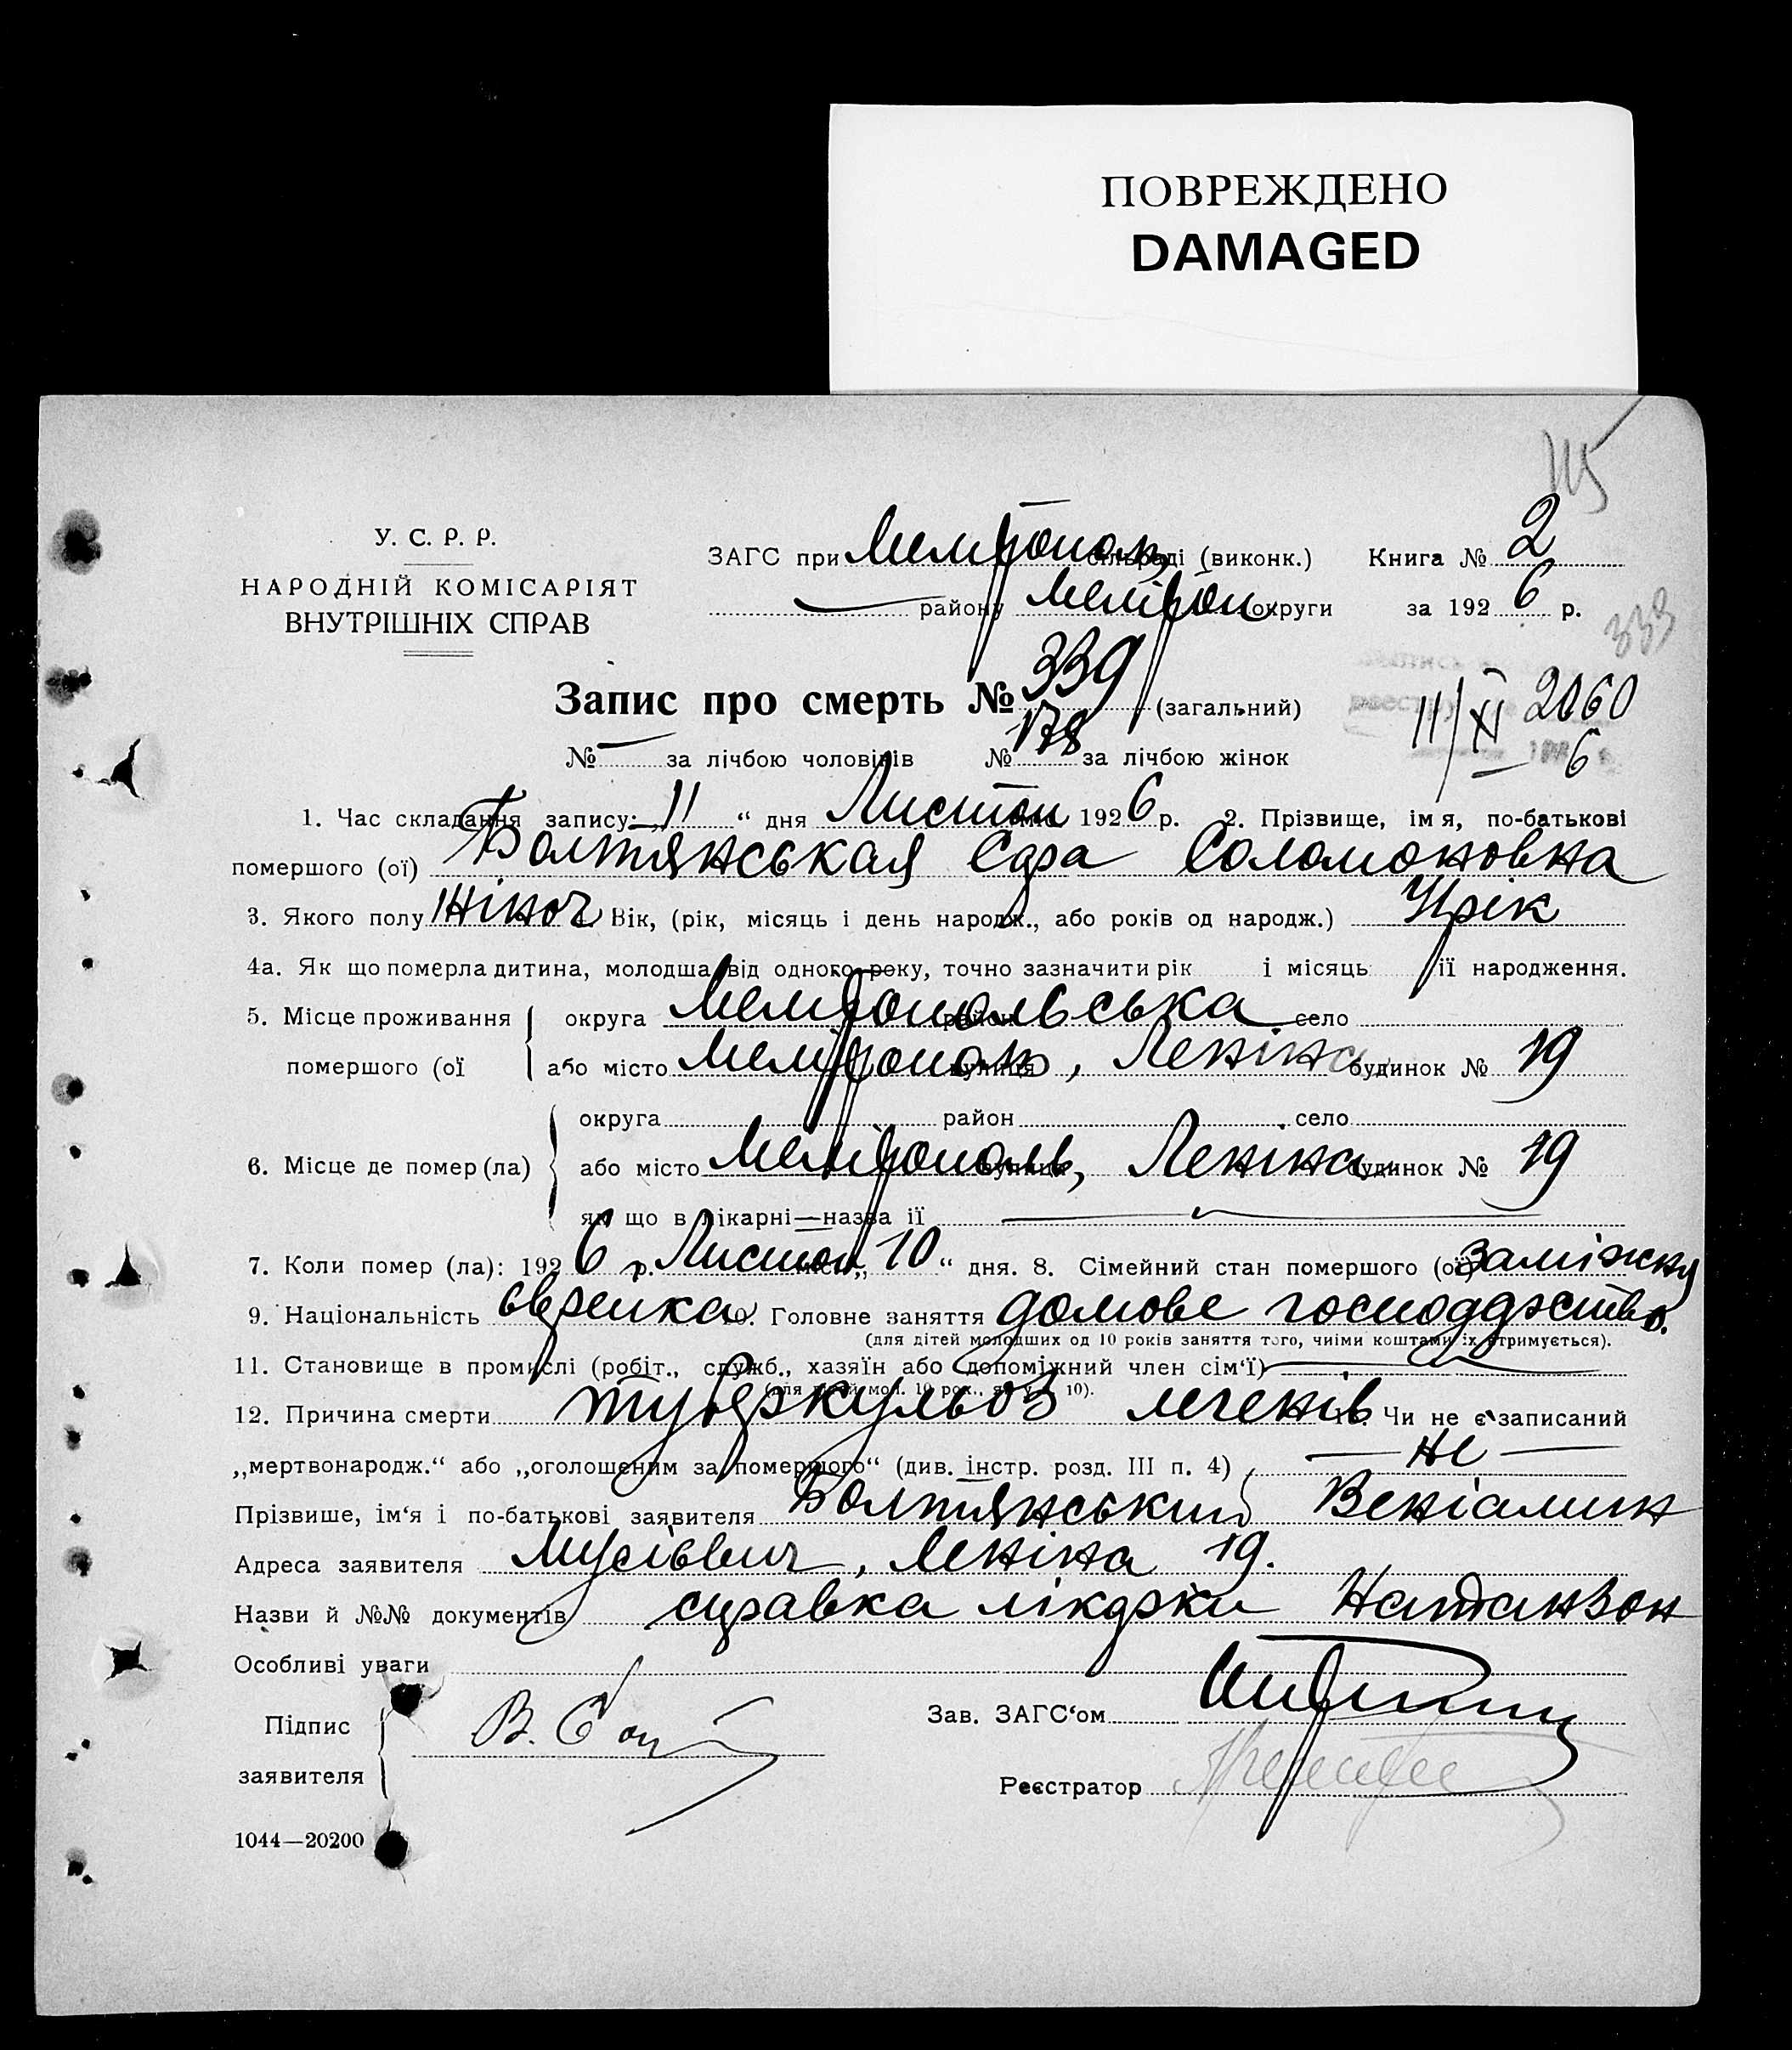 ПОВРЕЖДЕНО
DAMAGED
115
У. С. Р. Р.
НАРОДНІЙ КОМІСАРІЯТ
ВНУТРІШНІХ СПРАВ
ЗАГС при Мелітопол. сільраді (виконк.) Книга № 2
— району Меліпол округи за 1926 р.
339
Запис про смерть № 339 (загальний)
11/XI 2060
№ — за лічбою чоловіків № 178 за лічбою жінок
6
1. Час складання запису: „11“ дня Листоп 1926 р. 2. Прізвище, імя, по-батькові
помершого (ої) Болтянськая Соломоновна
3. Якого полу Жіноч Вік, (рік, місяць і день народж., або років од народж.)
4а. Як що померла дитина, молодша від одного року, точно зазначити рік і місяць її народження.
5. Місце проживання округа Мелітопольська район село
помершого (ої або місто Мелітополь, вулиця Леніна будинок № 19
округа район село
6. Місце де помер (ла) або місто Мелітополь, вулиця Леніна будинок № 19
як що в лікарні—назва її —
7. Коли помер (ла): 1926 р. Листоп „10“ дня. 8. Сімейний стан помершого (ої) заміжня
9. Національність єврейка 10. Головне заняття домове господдрство.
(для дітей молодших од 10 років заняття того, чиїми коштами їх отримується).
11. Становище в промислі (робіт., служб., хазяїн або допоміжний член сім‘ї) —
(для дітей мол. 10 рок., як у п. 10).
12. Причина смерти туберкульоз легенів Чи не є записаний
„мертвонародж.“ або „оголошеним за помершого“ (див. інстр. розд. III п. 4) — не —
Прізвише, ім‘я і по-батькові заявителя Болтянський Веніамин
Адреса заявителя Мусієвич, Леніна 19.
Назви й №№ документів справка лікарки Натанзон
Особливі уваги
Підпис
заявителя
В.
Зав. ЗАГС‘ом
Реєстратор
1044—20200